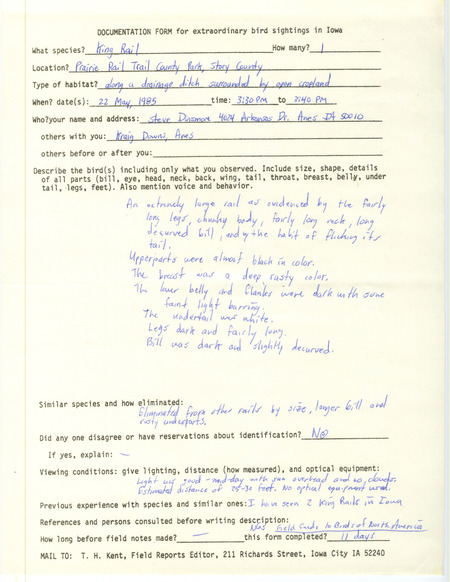 DOCUMENTATION FORM for extraordinary bird sightings in Iowa
What species? King Rail How many? 1
Location? Prairie Rail Trail County Park, Story County
Type of habitat? along a drainage ditch surrounded by open cropland
When? date(s): 22 May, 1985 time: 3:30 PM to 3:40 PM
Who?your name and address: Steve Dinsmore 4024 Arkansas Dr. Ames IA 50010
others with you: Kraig Downs, Ames
others before or after you:
Describe the bird(s) including only what you observed. Include size, shape, details
of all parts (bill, eye, head, neck, back, wing, tail, throat, breast, belly, under
tail, legs, feet). Also mention voice and behavior.
An extremely large rail as evidenced by the fairly
long legs, chunky body, fairly long neck, long
decurved bill, and by the habit of flicking its
tail.
Upperparts were almost black in color.
The breast was a deep rusty color.
The lower belly and flanks were dark with some
faint light barring.
The undertail was white.
Legs dark and fairly long.
Bill was dark and slightly decurved.
Similar species and how eliminated:
Eliminated from other rails by size, longer bill and
rusty underparts.
Did any one disagree or have reservations about identification? No
If yes, explain: —
Viewing conditions: give lighting, distance (how measured), and optical equipment:
Light was good - mid-day with sun overhead and no clouds.
Estimated distance of 25-30 feet. No optical equipment used.
Previous experience with species and similar ones: I have seen 2 King Rails in Iowa
References and persons consulted before writing description:
NGS Field Guide to Birds of North America
How long before field notes made? — this form completed? 11 days
MAIL TO: T. H. Kent, Field Reports Editor, 211 Richards Street, Iowa City IA 52240